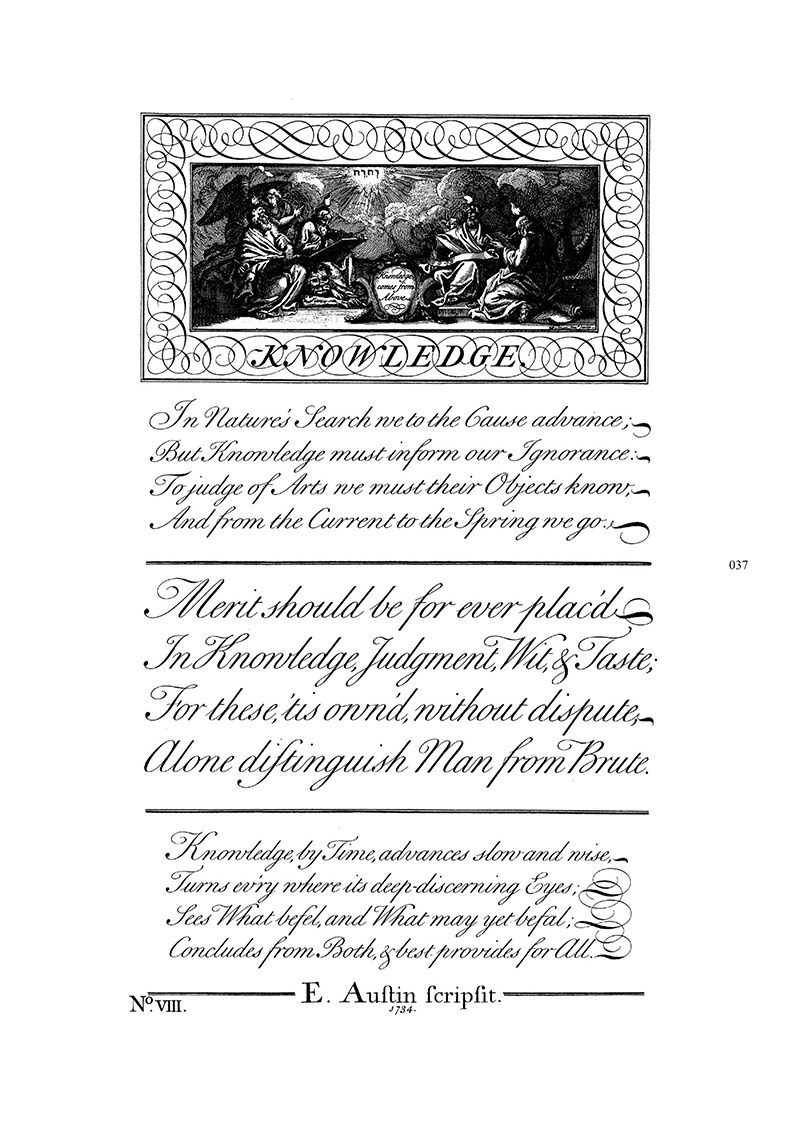 Knowledge
comes from
Above
KNOWLEDGE.
In Nature's Search we to the Cause advance;
But Knowledge must inform our Ignorance:
To judge of Arts we must their Objects know;
And from the Current to the Spring we go.
037
Merit should be for ever plac'd
In Knowledge, Judgment, Wit, & Taste;
For these, 'tis own'd, without dispute,
Alone diſtinguish Man from Brute.
Knowledge, by Time, advances slow and wise,
Turns ev'ry where its deep-discerning Eyes;
Sees What befel, and What may yet befal;
Concludes from Both, & best provides for All.
E. Auſtin ſcripſit.
1734.
No. VIII.